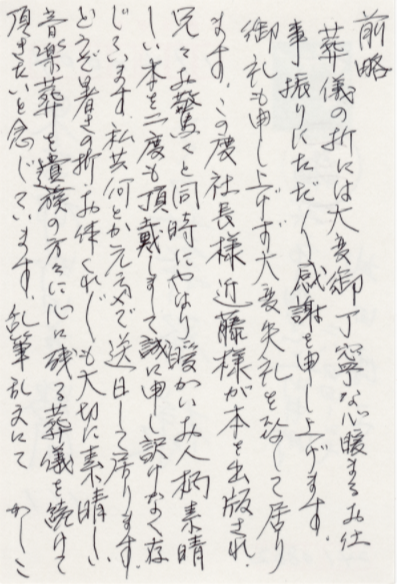 前略
葬儀の折には大変御丁寧な心暖まるお仕
事振りにただ〱感謝を申し上げます。
御礼も申し上げず大変失礼を致して居り
ます。この度社長様近藤様が本を出版され、
兄々お驚くと同時にやはり暖かいお人柄素晴
しい本を二度も頂戴しまして誠に申し訳けなく存
じています。私共何とか元気で送日して居ります。
どうぞ暑さの折、お体くれ〲も大切に素晴しい
音楽葬を遺族の方々に心に残る葬儀を続けて
頂きたいと念じています。乱筆乱文にて かしこ